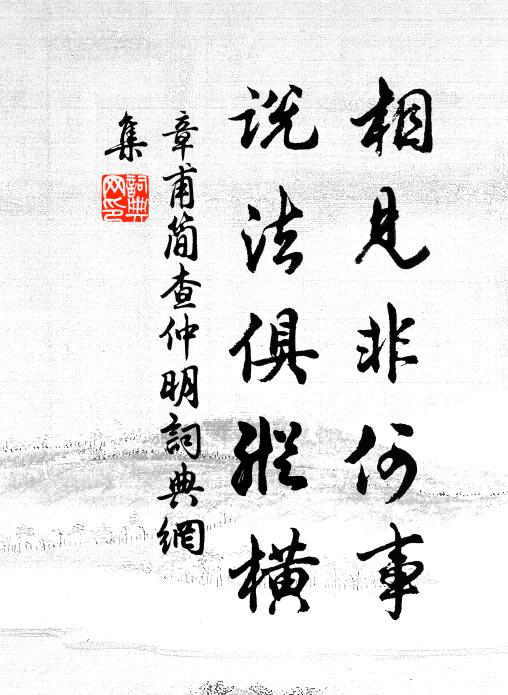 相見非何事
說法俱縱橫
章甫簡查仲明詞典網
集
詞典
网印